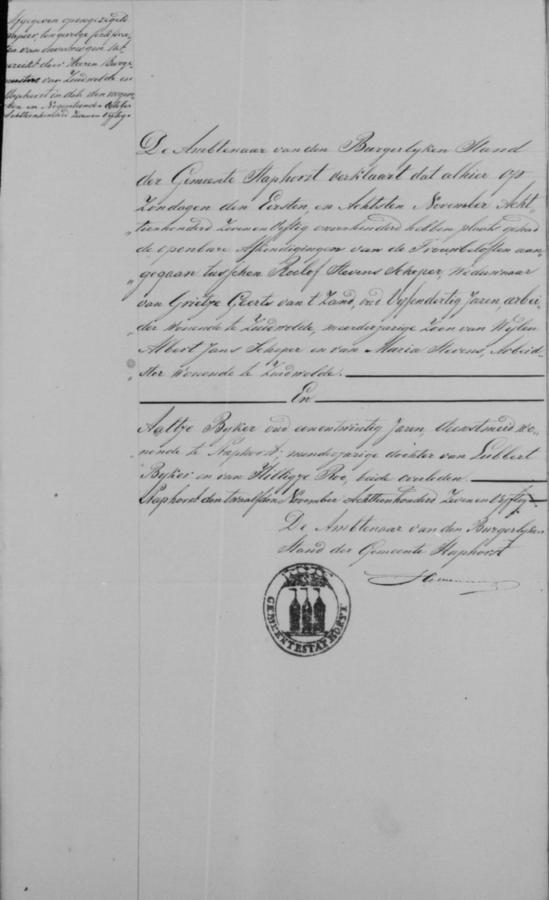 Afgegeven op ongezegeld
papier, ten gevolge certificaten
van onvermogen uitgereikt
door Heeren Burgemeesters
van Zuidwolde en
Staphorst in dato den
en Negentienden October
Achttienhonderd Zevenenvyftig.
De Ambtenaar van den Burgerlyken Stand
der Gemeente Staphorst verklaart dat alhier op
Zondagen den Eersten, en Achtsten November Acht-
tienhonderd Zevenenvyftig onverhinderd hebben plaats gehad
de openbare Afkondigingen van de Trouwbeloften aan-
gegaan tusschen Roelof Stevens Scheper, Weduwnaar
van Grietje Geerts van 't Zand, oud Vyfendertig Jaren, arbei-
der wonende te Zuidwolde, meerderjarige Zoon van Wylen
Albert Jans Scheper en van Maria Stevens, Arbeid-
ster wonende te Zuidwolde.
En
Aaltje Byker oud eenentwintig Jaren, dienstmeid wo-
nende te Staphorst, minderjarige dochter van Lubbert
Byker en van Hilligje Roo, beide overleden.
Staphorst den twaalfden November Achttienhonderd Zevenenvyftig.
De Ambtenaar van den Burgerlyken
Stand der Gemeente Staphorst
GEMEENTE STAPHORST